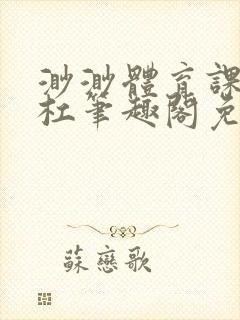 渺渺體育課
杜筆趣閣免
蘇戀歌